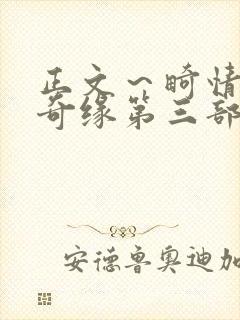 正文～畸情
奇缘第三部
安德鲁奥迪加